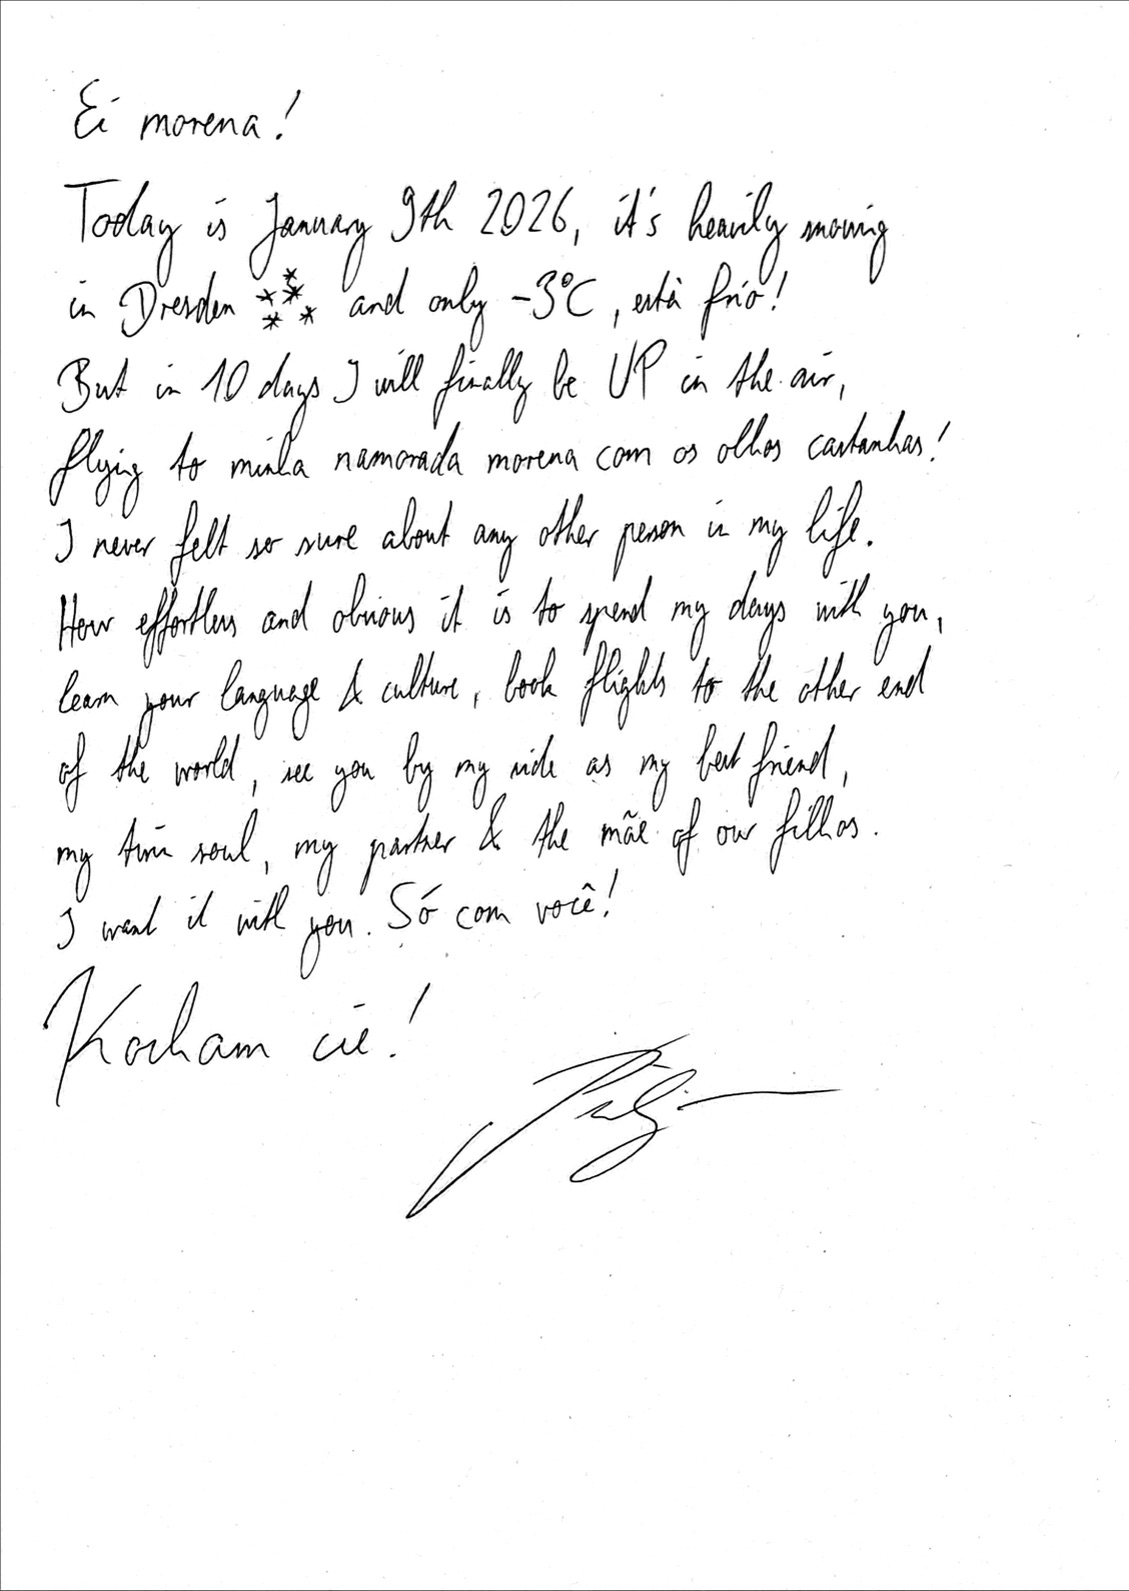 Ei morena!
Today is January 9th 2026, it's heavily snowing
in Dresden and only -3°C, está frío!
But in 10 days I will finally be UP in the air,
flying to minha namorada morena com os olhos castanhas!
I never felt so sure about any other person in my life.
How effortless and obvious it is to spend my days with you,
learn your language & culture, book flights to the other end
of the world, see you by my side as my best friend,
my twin soul, my partner & the mãe of our filhos.
I want it with you. Só com você!
Kocham cie!